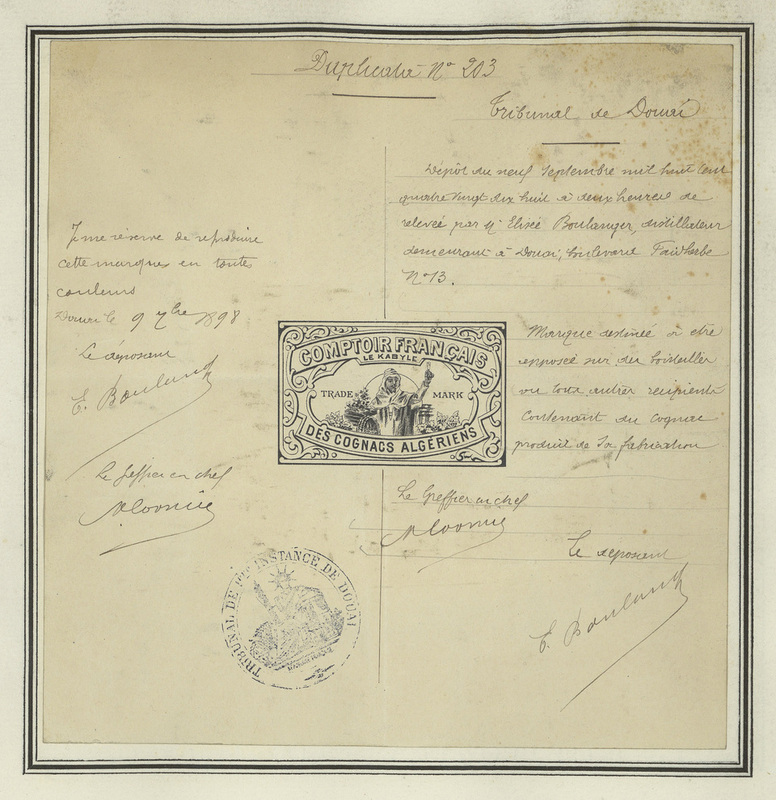 Duplicata No 203
Tribunal de Douai
Dépôt du neuf Septembre mil huit cent
quatre vingt dix huit à deux heures de
relevée par Mr Elisée Boulanger, distillateur
demeurant à Douai, boulevard Faidherbe
No 13.
Je me réserve de reproduire
cette marque en toute
couleurs
Douai le 9 7bre 1898
Le déposant
E. Boulang
Le Greffier en chef
COMPTOIR FRANÇAIS
LE KABYLE
TRADE MARK
DES COGNACS ALGÉRIENS
Marque destinée à etre
apposée sur des bouteilles
ou tous autres recipients
Contenant du Cognac
produit de sa fabrication
Le Greffier en chef
Le déposant
E. Boulang
TRIBUNAL DE 1ERE INSTANCE DE DOUAI